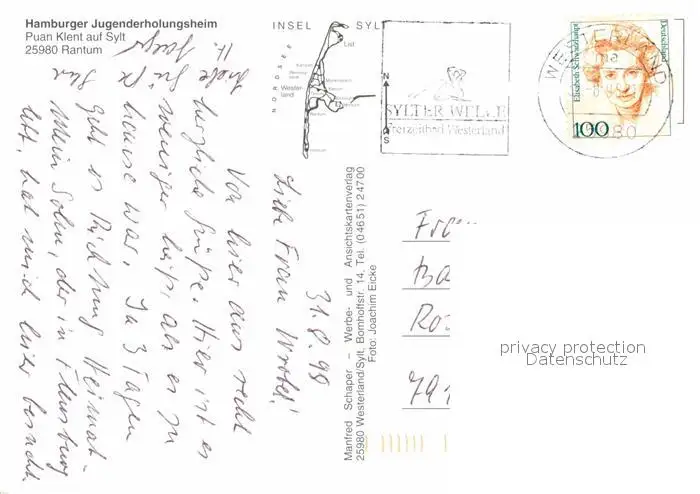 Hamburger Jugenderholungsheim
Puan Klent auf Sylt
25980 Rantum
INSEL SYLT
NORDSEE
List
Kampen
Wester-
land
Rantum
N
S
SYLTER WELLE
Freizeitbad Westerland
WESTERLAND
25980
Deutschland
Elisabeth Schwarzhaupt
100
31.8.98
Liebe Frau Wrobel!
Von hier aus recht
herzliche Grüße. Hier ist es
weniger heiß, als es zu
hause war. In 3 Tagen
geht es Richtung Heimat.
Mein Sohn, der in Flensburg
lebt, hat mich hier besucht.
Liebe Grüße
Manfred Schaper – Werbe- und Ansichtskartenverlag
25980 Westerland/Sylt, Bomhoffstr. 14, Tel. (04651) 24700
Foto: Joachim Eicke
Ba
Ro
791
privacy protection
Datenschutz